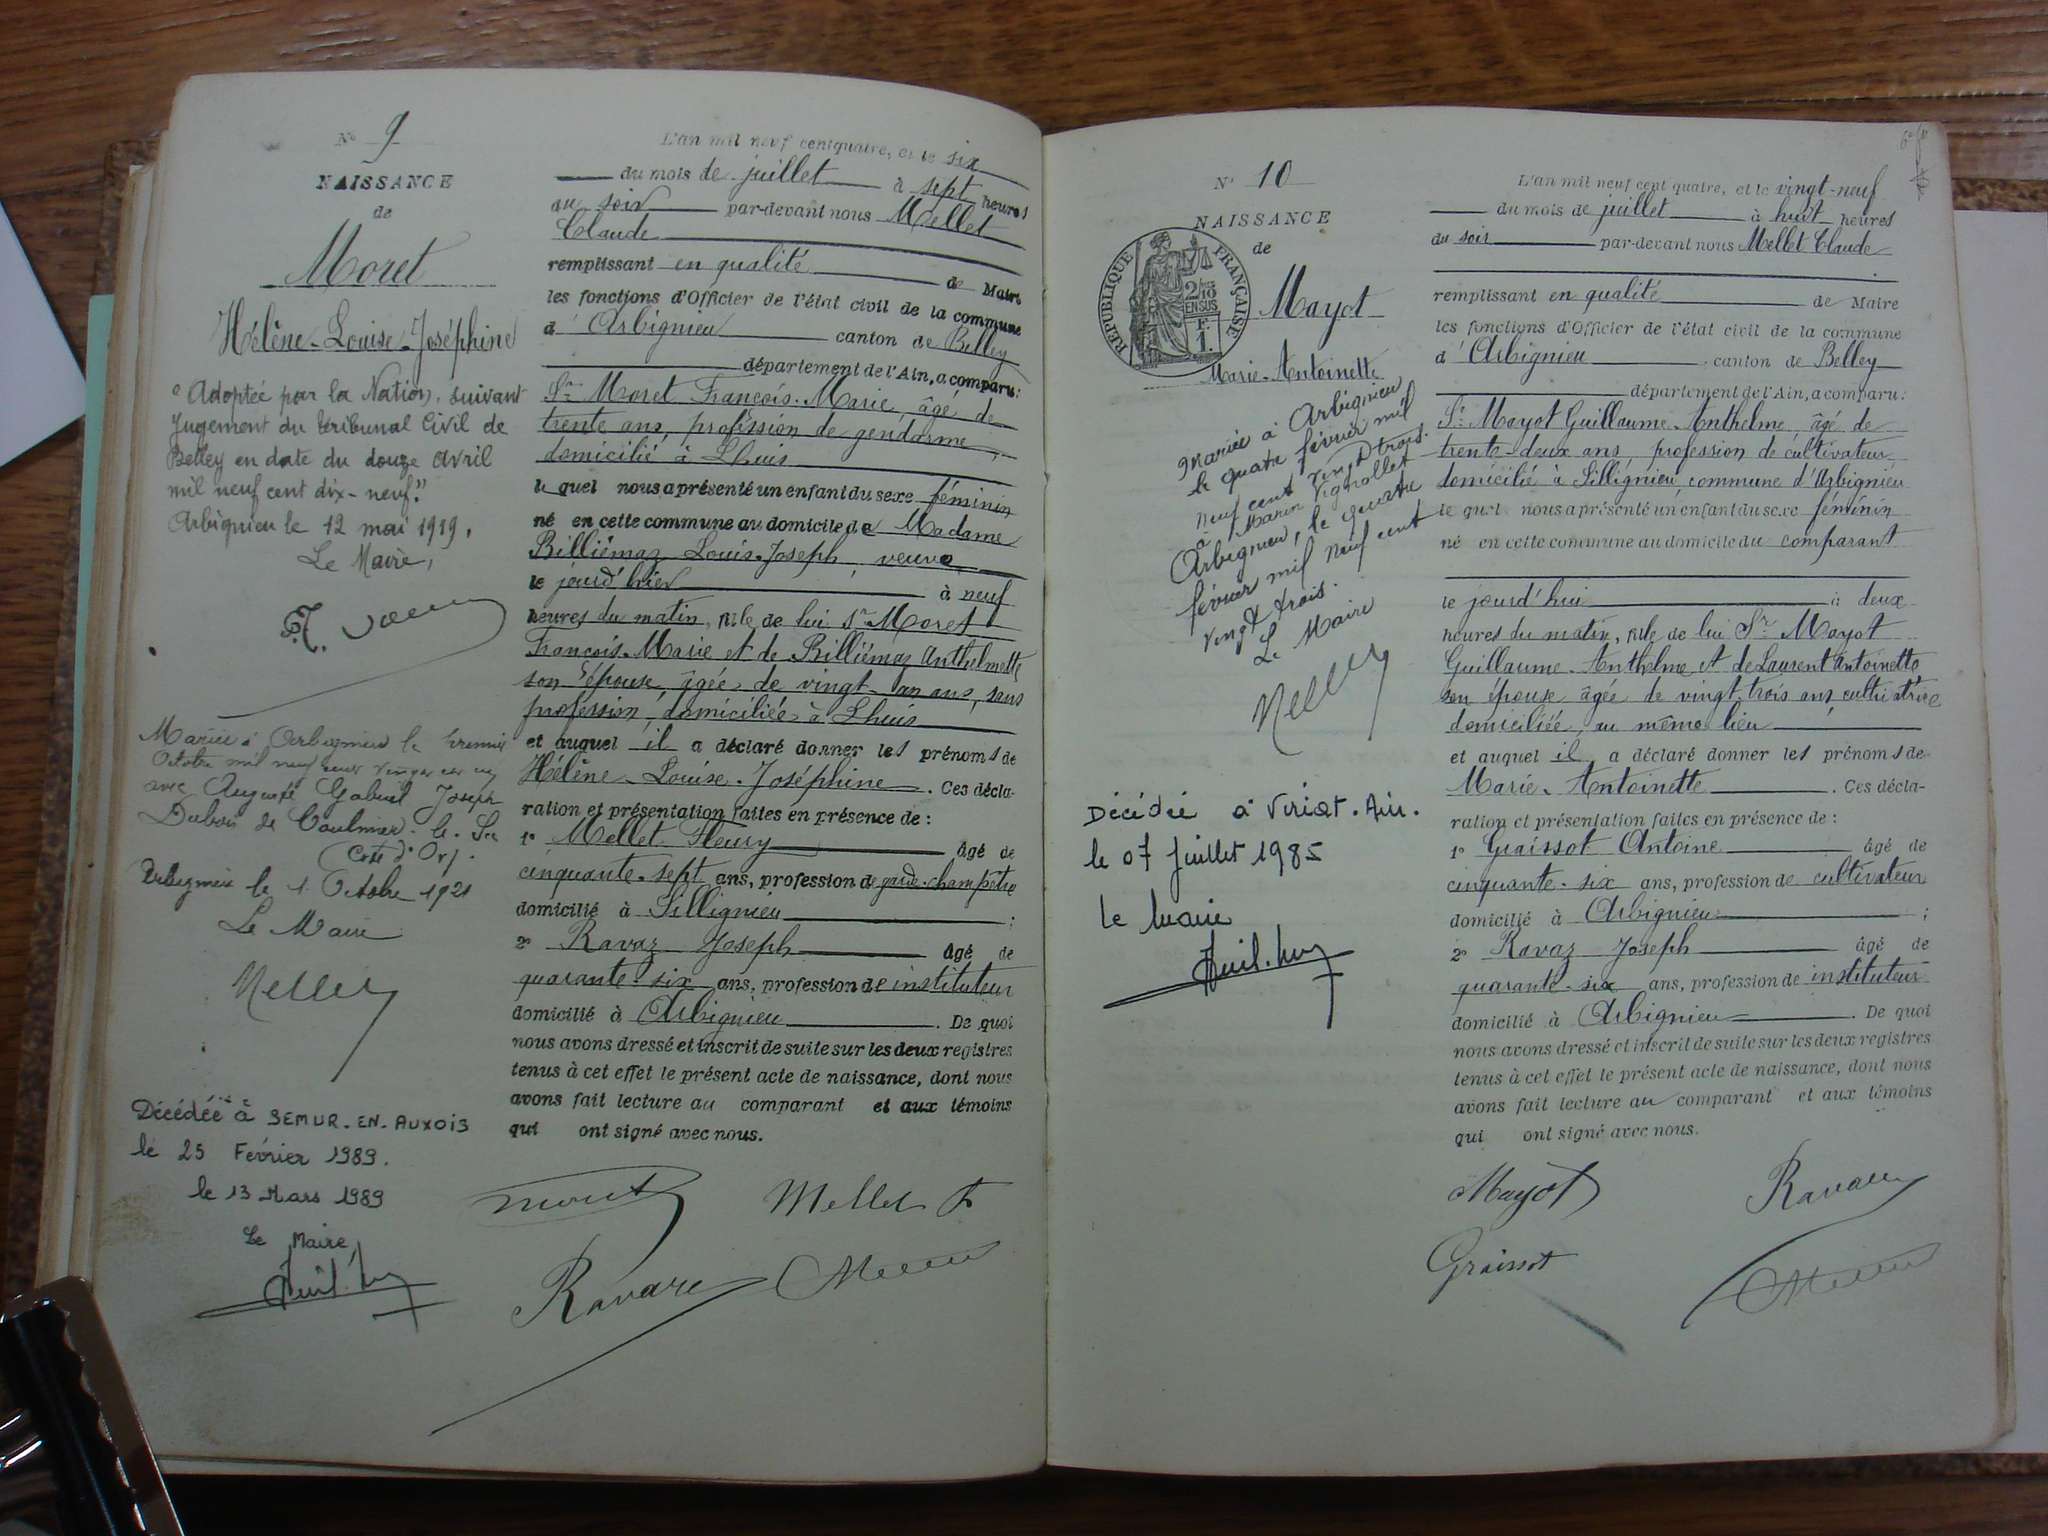 N° 9
NAISSANCE
de
Moret
Hélène-Louise-Joséphine
"Adoptée par la Nation, suivant
Jugement du tribunal Civil de
Belley en date du douze avril
mil neuf cent dix-neuf."
Arbignieu le 12 mai 1919,
Le Maire,
Mariée à Arbignieu le premier
Octobre mil neuf cent vingt et un
avec Auguste Gabriel Joseph
Dubois de Coulmier-le-Sec
(Côte d'Or).
Arbignieu le 1 Octobre 1921
Le Maire
Mellet
Décédée à SEMUR-EN-AUXOIS
le 25 Février 1989.
le 13 Mars 1989
Le Maire,
L'an mil neuf cent quatre, et le six
du mois de juillet à sept heures
du soir par-devant nous Mellet
Claude
remplissant en qualité de Maire
les fonctions d'Officier de l'état civil de la commune
d'Arbignieu canton de Belley
département de l'Ain, a comparu:
Sr Moret François-Marie, âgé de
trente ans, profession de gendarme,
domicilié à Lhuis
lequel nous a présenté un enfant du sexe féminin
né en cette commune au domicile de Madame
Billiémaz Louis-Joseph, veuve
le jourd'hier à neuf
heures du matin, fille de lui Sr Moret
François-Marie et de Billiémaz Anthelmette
son épouse, âgée de vingt-un ans, sans
profession, domiciliée à Lhuis
et auquel il a déclaré donner les prénoms de
Hélène-Louise-Joséphine. Ces décla-
ration et présentation faites en présence de:
1° Mellet Fleury âgé de
cinquante-sept ans, profession de garde-champêtre
domicilié à Sillignieu;
2° Ravaz Joseph âgé de
quarante-six ans, profession de instituteur
domicilié à Arbignieu. De quoi
nous avons dressé et inscrit de suite sur les deux registres
tenus à cet effet le présent acte de naissance, dont nous
avons fait lecture au comparant et aux témoins
qui ont signé avec nous.
Moret Mellet F
Ravaz Mellet
N° 10
NAISSANCE
de
REPUBLIQUE FRANÇAISE
2/10 EN SUS
1 F.
Mayot
Marie-Antoinette
Mariée à Arbignieu
le quatre février mil
neuf cent vingt trois.
à Marin Vignollet
Arbignieu, le quatre
février mil neuf cent
vingt trois.
Le Maire
Mellet
Décédée à Viriat-Ain.
le 07 Juillet 1985
le Maire
L'an mil neuf cent quatre, et le vingt-neuf
du mois de juillet à huit heures
du soir par-devant nous Mellet Claude
remplissant en qualité de Maire
les fonctions d'Officier de l'état civil de la commune
d'Arbignieu canton de Belley
département de l'Ain, a comparu:
Sr Mayot Guillaume-Anthelme, âgé de
trente-deux ans, profession de cultivateur
domicilié à Sillignieu commune d'Arbignieu
lequel nous a présenté un enfant du sexe féminin
né en cette commune au domicile du comparant
le jourd'hui à deux
heures du matin, fille de lui Sr Mayot
Guillaume-Anthelme et de Laurent Antoinette
son épouse âgée de vingt trois ans, cultivatrice
domiciliée, au même lieu
et auquel il a déclaré donner les prénoms de
Marie-Antoinette. Ces décla-
ration et présentation faites en présence de:
1° Graissot Antoine âgé de
cinquante-six ans, profession de cultivateur
domicilié à Arbignieu;
2° Ravaz Joseph âgé de
quarante-six ans, profession de instituteur
domicilié à Arbignieu. De quoi
nous avons dressé et inscrit de suite sur les deux registres
tenus à cet effet le présent acte de naissance, dont nous
avons fait lecture au comparant et aux témoins
qui ont signé avec nous.
Mayot Ravaz
Graissot Mellet